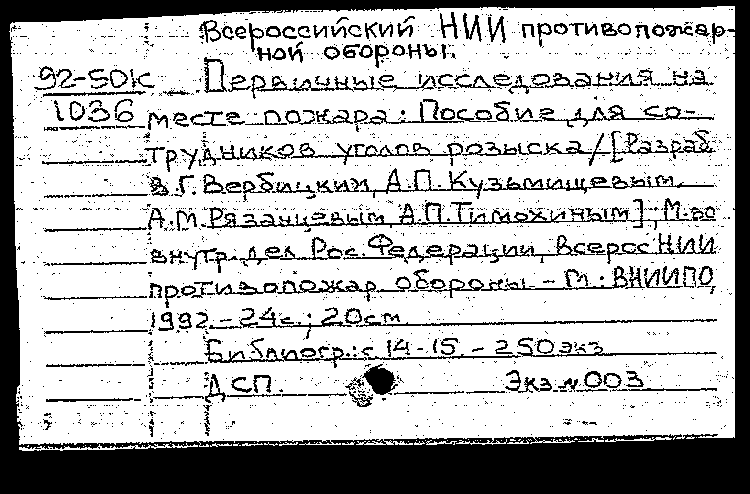 Всероссийский НИИ противопожар-
ной обороны.
92-50К Первичные исследования на
1036 месте пожара: Пособие для со-
трудников уголов розыска/[Разраб.
В.Г. Вербицким, А.П. Кузьмищевым,
А.М. Рязанцевым, А.П. Тимохиным]; М-во
внутр. дел Рос. Федерации, Всерос НИИ
противопожар обороны - М.: ВНИИПО,
1992. - 24с.; 20см
Библиогр.: с 14-15. - 250 экз
ДСП. Экз № 003